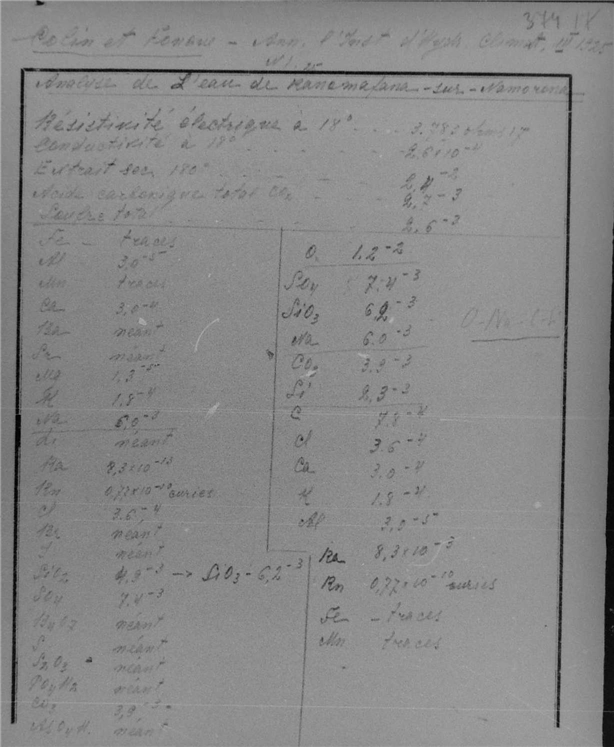 374
Colin et Ann. l'Inst d'Hyd. Climat, III 1925
Analyse de L'eau de Ranomafana-sur-Namorona
Résistivité électrique à 18° 3.780 ohms
Conductivité à 18° 2,6×10⁻⁴
Extrait sec. 180° 2,4⁻²
Acide carbonique total CO₂ 2,7⁻³
Soufre total 2,6⁻³
Fe - traces
Al 3,0⁻⁵
Mn traces
Ca 3,0⁻⁴
Ba néant
Sr néant
Mg 1,3⁻⁵
K 1,8⁻⁴
Na 6,0⁻³
Li néant
Ra 8,3×10⁻¹³
Rn 0,77×10⁻¹⁰ curies
Cl 3.6⁻⁴
Br néant
I néant
SiO₂ 4,9⁻³ → SiO₃ - 6,2⁻³
SO₄ 7.4⁻³
néant
S néant
néant
PO₄H₂ néant
CO₃ 3,9⁻³
AsO₄H. néant
O. 1,2⁻²
SO₄ 7.4⁻³
SiO₃ 6,2⁻³
Na 6.0⁻³
CO₃ 3.9⁻³
Si 2,3⁻³
C 7.8⁻⁴
Cl 3.6⁻⁴
Ca 3.0⁻⁴
K 1.8⁻⁴
Al 3,0⁻⁵
Ra 8,3×10⁻³
Rn 0,77×10⁻¹⁰ curies
Fe - traces
Mn traces